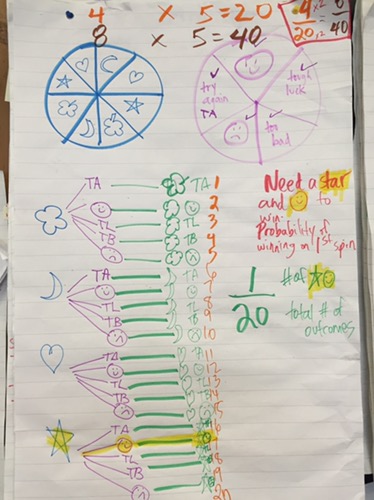 4 x 5 = 20
8 x 5 = 40
4 x2
20 x2 40
try again
TA
tough luck
too bad
TA TA 1
2
TL TL 3
TB TB 4
5
TA 6
7
TL 8
TB 9
10
TA 11
12
TL 13
TB 14
15
TA 16
TL
TB 19
20
Need a star
and to
win.
Probability of
winning on 1st spin
1 # of
20 total # of
outcomes